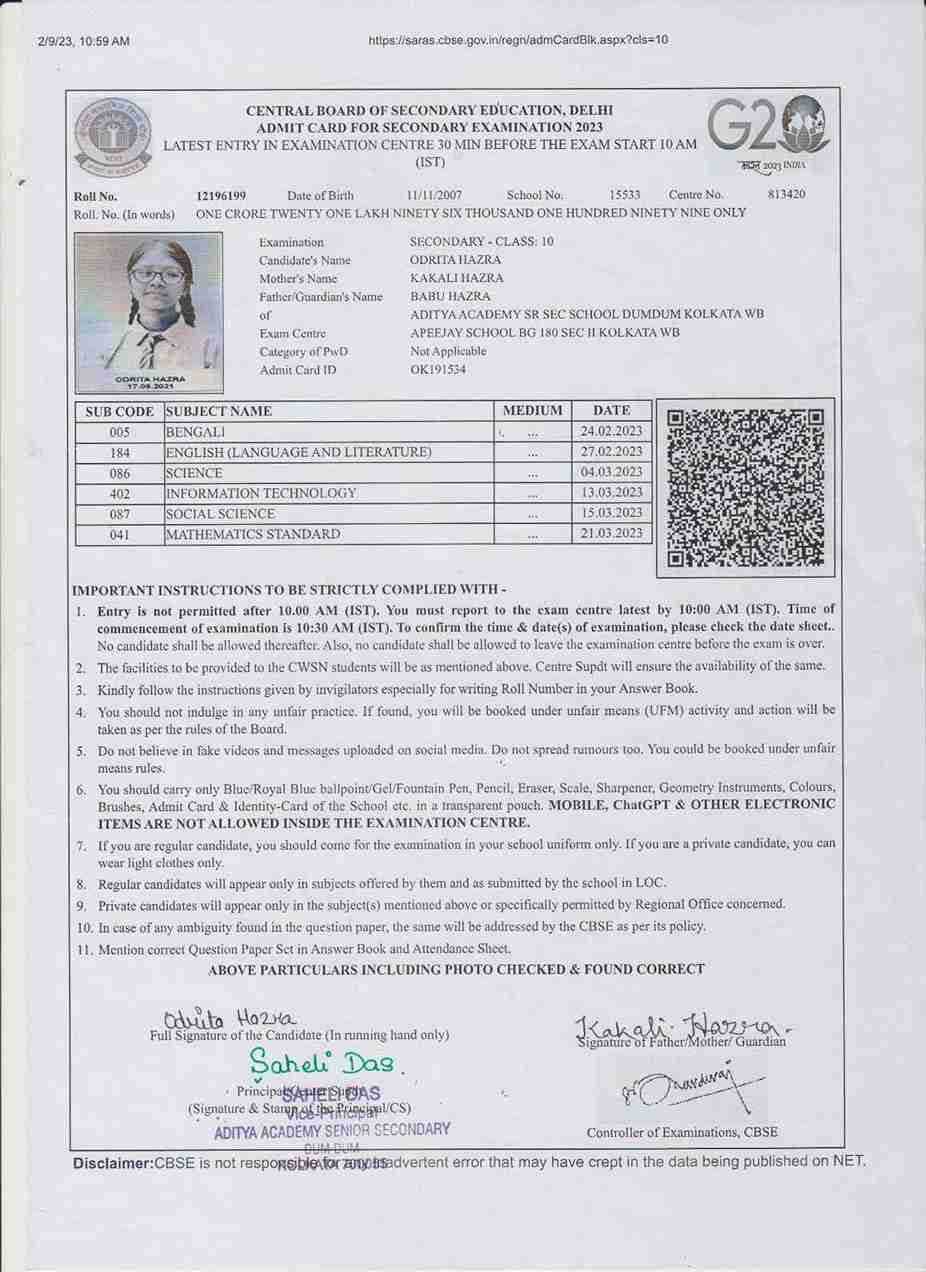 2/9/23, 10:59 AM
https://saras.cbse.gov.in/regn/admCardBlk.aspx?cls=10
CENTRAL BOARD OF SECONDARY EDUCATION, DELHI
ADMIT CARD FOR SECONDARY EXAMINATION 2023
LATEST ENTRY IN EXAMINATION CENTRE 30 MIN BEFORE THE EXAM START 10 AM
(IST)
G20
भारत 2023 INDIA
Roll No. 12196199 Date of Birth 11/11/2007 School No. 15533 Centre No. 813420
Roll. No. (In words) ONE CRORE TWENTY ONE LAKH NINETY SIX THOUSAND ONE HUNDRED NINETY NINE ONLY
Examination SECONDARY - CLASS: 10
Candidate's Name ODRITA HAZRA
Mother's Name KAKALI HAZRA
Father/Guardian's Name BABU HAZRA
of ADITYA ACADEMY SR SEC SCHOOL DUMDUM KOLKATA WB
Exam Centre APEEJAY SCHOOL BG 180 SEC II KOLKATA WB
Category of PwD Not Applicable
Admit Card ID OK191534
ODRITA HAZRA
17.08.2021
SUB CODE SUBJECT NAME MEDIUM DATE
005 BENGALI ... 24.02.2023
184 ENGLISH (LANGUAGE AND LITERATURE) ... 27.02.2023
086 SCIENCE ... 04.03.2023
402 INFORMATION TECHNOLOGY ... 13.03.2023
087 SOCIAL SCIENCE ... 15.03.2023
041 MATHEMATICS STANDARD ... 21.03.2023
IMPORTANT INSTRUCTIONS TO BE STRICTLY COMPLIED WITH -
1. Entry is not permitted after 10.00 AM (IST). You must report to the exam centre latest by 10:00 AM (IST). Time of
commencement of examination is 10:30 AM (IST). To confirm the time & date(s) of examination, please check the date sheet..
No candidate shall be allowed thereafter. Also, no candidate shall be allowed to leave the examination centre before the exam is over.
2. The facilities to be provided to the CWSN students will be as mentioned above. Centre Supdt will ensure the availability of the same.
3. Kindly follow the instructions given by invigilators especially for writing Roll Number in your Answer Book.
4. You should not indulge in any unfair practice. If found, you will be booked under unfair means (UFM) activity and action will be
taken as per the rules of the Board.
5. Do not believe in fake videos and messages uploaded on social media. Do not spread rumours too. You could be booked under unfair
means rules.
6. You should carry only Blue/Royal Blue ballpoint/Gel/Fountain Pen, Pencil, Eraser, Scale, Sharpener, Geometry Instruments, Colours,
Brushes, Admit Card & Identity-Card of the School etc. in a transparent pouch. MOBILE, ChatGPT & OTHER ELECTRONIC
ITEMS ARE NOT ALLOWED INSIDE THE EXAMINATION CENTRE.
7. If you are regular candidate, you should come for the examination in your school uniform only. If you are a private candidate, you can
wear light clothes only.
8. Regular candidates will appear only in subjects offered by them and as submitted by the school in LOC.
9. Private candidates will appear only in the subject(s) mentioned above or specifically permitted by Regional Office concerned.
10. In case of any ambiguity found in the question paper, the same will be addressed by the CBSE as per its policy.
11. Mention correct Question Paper Set in Answer Book and Attendance Sheet.
ABOVE PARTICULARS INCLUDING PHOTO CHECKED & FOUND CORRECT
Odrita Hazra
Full Signature of the Candidate (In running hand only)
Kakali Hazra
Signature of Father/Mother/ Guardian
Saheli Das.
SAHELI DAS
(Signature & Stamp of the Principal/CS)
Vice-Principal
ADITYA ACADEMY SENIOR SECONDARY
DUM DUM
Controller of Examinations, CBSE
KOLKATA
Disclaimer:CBSE is not responsible for any inadvertent error that may have crept in the data being published on NET.